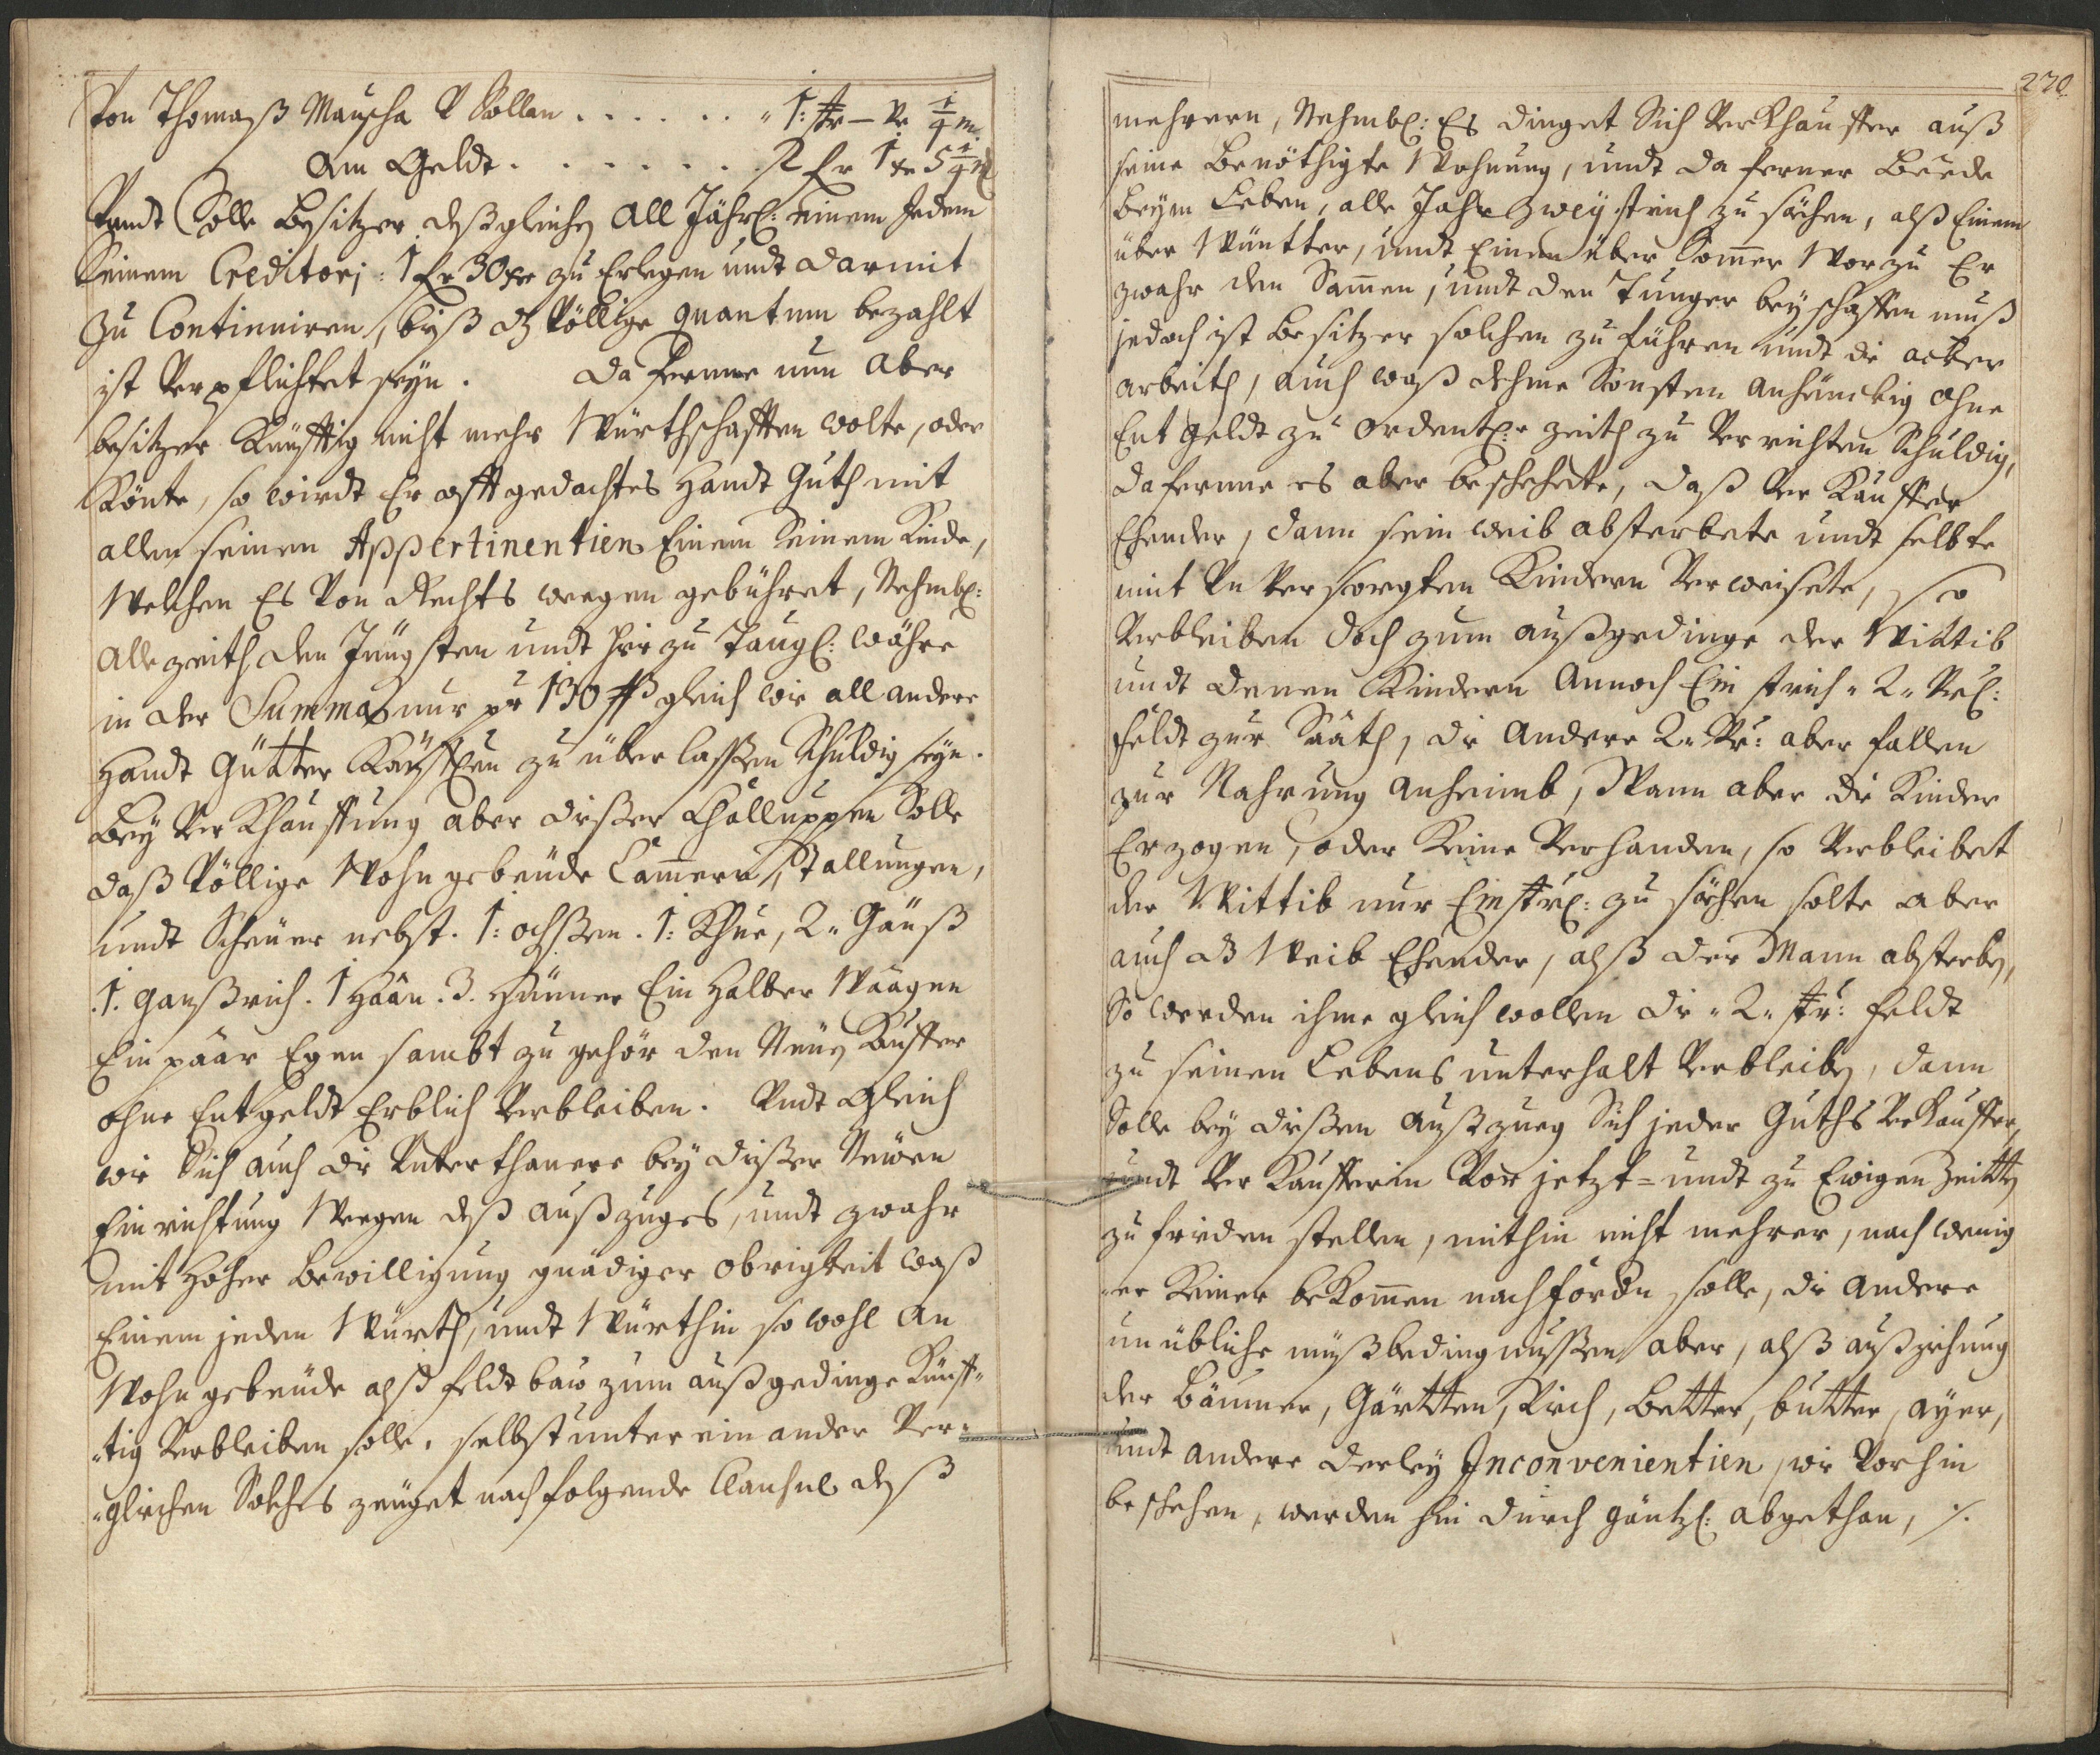 Von Thomaß Mauscha P Sollen . . . . . . " 1: str — vr 1/4 m
Am Geldt . . . . . . . 2 fr 1 xr 5 1/4 &
Vundt Solle Besitzer deßgleichen all Jährl: einem Jedem
Seinem Creditorj: 1 fr 30 xr zu Erlegen undt darmit
zu Continuiren, biß dz Völlige quantum bezahlt
ist Verpflichtet seyn. Daferne nun Aber
besitzer Künfftig nicht mehr Würthschafften wolte, oder
Könte, so wirdt Er offtgedachtes Handt Guth mit
allen seinen Appertinentien Einem Seinem Kinde,
Welchen Es Von Rechts weegen gebühret, Nehmbl:
Allezeith den Jüngsten undt hirzu Taugl: währe
in der Summa nur pr 130 ß gleich wie all andere
Handt Gütter Käufflen zu überlassen Schuldig seyn.
Bey Verkhauffung aber dißer Challuppen Solle
daß Völlige Wohngebeüde Cammern, Stallungen,
undt Scheüer nebst. 1: ochßen. 1: Khue, 2„ Gäuß
.1. ganßrich. 1 Haan. 3. Hünner Ein Halber Waagen
Ein paar Egen sambt zugehör den Neüen Kauffer
ohne Entgeldt Erblich Verbleiben. Vndt Gleich
wie Sich auch die Unterthanere bey dißer Neüen
Einrichtung Weegen deß außzuges, undt zwahr
mit Hoher Bewilligung gnädiger Obrigkeit waß
Einem jeden Würth, undt Würthin so wohl an
Wohngebeüde alß feldtbau zum außgedinge Künff„
„tig Verbleiben solle, selbst untereinander Ver„
„glichen Solches zeüget nachfolgende Clausul deß
270
mehrern, Nehmbl: Es dinget Sich Verkhauffer auß
seine Benöthigte Wohnung, undt da ferner Beede
Beym Leben, alle Jahr Zwey strich zu sächen, alß Einem
über Wüntter, undt Einen über Sommer Worzu Er
zwahr den Sammen, undt den Tunger beyschaffen muß
jedoch ist Besitzer solchen zu führen undt die acker
arbeith, auch waß deßme Sonsten anhänckig ohne
Entgeldt zu ordentl: zeith zu Verrichten Schuldig,
daferne es aber beschehete, daß Ver Kauffer
Ehender, dann sein weib absterbete undt selbte
mit Vnversorgten Kindern Verweisete, so
Verbleiben doch zum außgedinge der Wittib
undt denen Kindern Annoch Ein strich „2„ Vrl:
feldt zur Saath, die Andere 2„ Vr: aber fallen
zur Nahrung anheimb, Wann aber die Kinder
Erzogen, oder Keine Verhanden, so Verbleibet
der Wittib nur Ein strl: zu sächen solte aber
auch dz Weib Ehender, alß der Mann absterben,
So werden ihme gleich wollen die „2„ str: feldt
zu seinen Lebens unterhalt Verbleiben, dann
Solle bey dißen außzueg Sich jeder Guths Verkauffer,
undt Ver Kaufferin Vor jetzt= undt zu Ewigen Zeitten
zu friden stellen, mithin nicht mehrer, noch wenig
„er Keiner bekommen noch fordern solle, die andere
unübliche mußbedingnussen aber, alß außziehung
der Bäumer, Gärtten, Vich, Better, butter, ayer,
undt andere derley Inconvenientien, wie Vorhin
beschehen, werden hiedurch gäntzl: abgethan, ./.